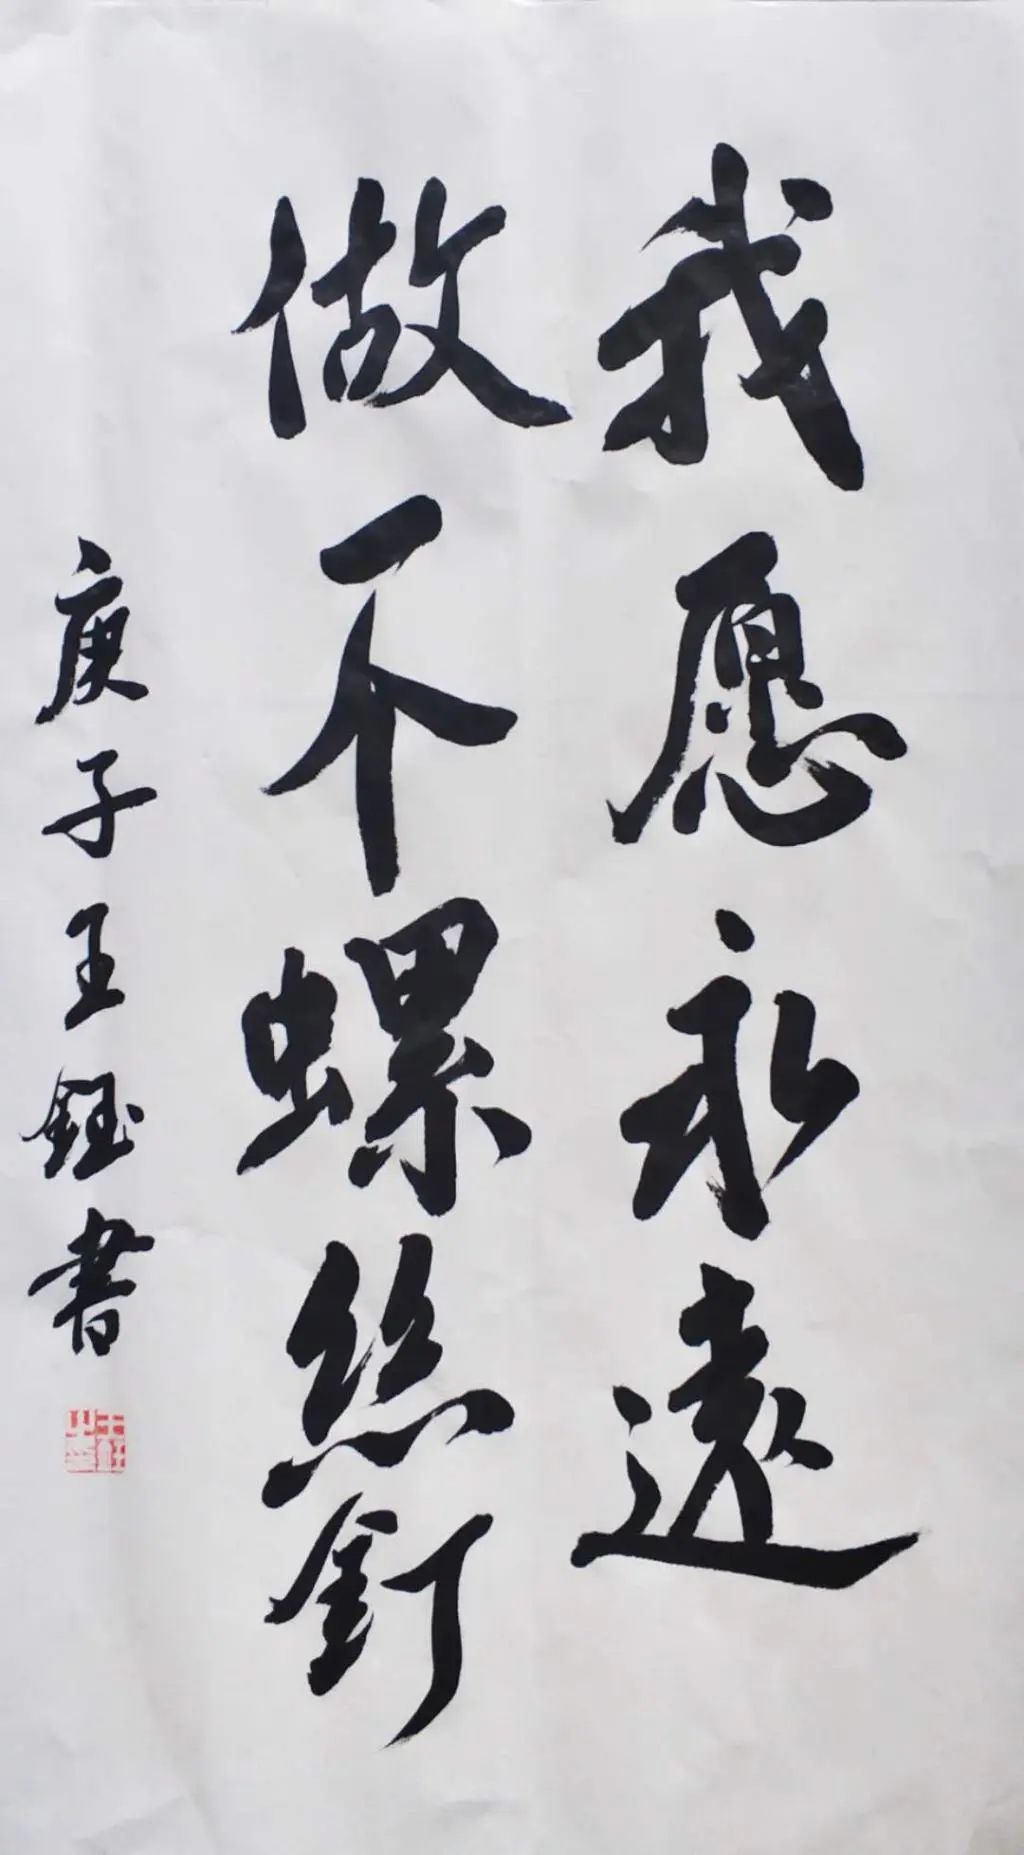 我愿永遠
做不螺絲釘
庚子王鈺書